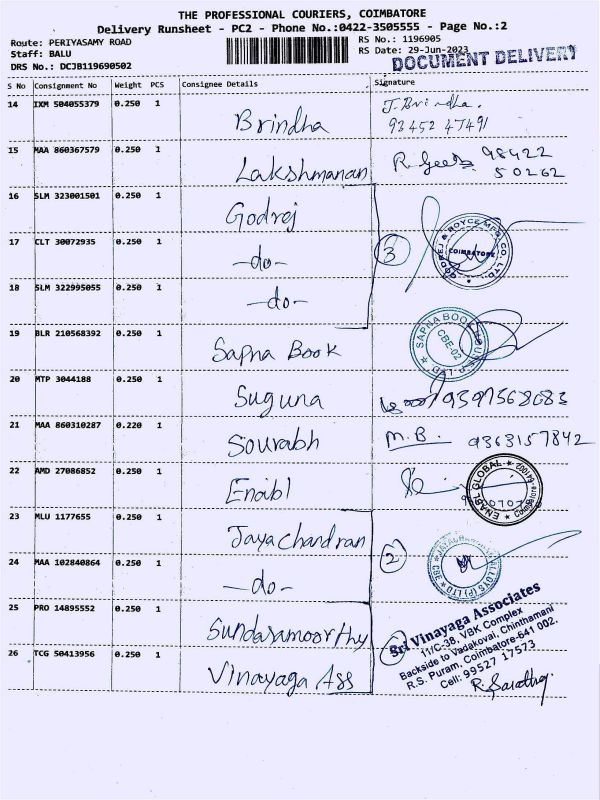 THE PROFESSIONAL COURIERS, COIMBATORE
Delivery Runsheet - PC2 - Phone No.:0422-3505555 - Page No.:2
Route: PERIYASAMY ROAD
RS No.: 1196905
Staff: BALU
RS Date: 29-Jun-2023
DRS No.: DCJB119690502
DOCUMENT DELIVERY
S No Consignment No Weight PCS Consignee Details Signature
14 IXM 504055379 0.250 1 Brindha J. Brindha.
93452 47491
15 MAA 860367579 0.250 1 Lakshmanan R. Geetha 98422
50262
16 SLM 323001501 0.250 1 Godrej
17 CLT 30072935 0.250 1 -do- 3 GODREJ & BOYCE MFG. CO. LTD. COIMBATORE
18 SLM 322995055 0.250 1 -do-
19 BLR 210568392 0.250 1 Sapna Book SAPNA BOOK HOUSE P LTD CBE-02
20 MTP 3044188 0.250 1 Suguna 9397568683
21 MAA 860310287 0.220 1 Sourabh M.B. 9363157842
22 AMD 27086852 0.250 1 Enabl ENABL GLOBAL Coimbatore-641002
23 MLU 1177655 0.250 1 Jayachandran
24 MAA 102840864 0.250 1 -do- 2 ALLOYS (P) LTD CBE
25 PRO 14895552 0.250 1 Sundaramoorthy
26 TCG 50413956 0.250 1 Vinayaga Ass
Sri Vinayaga Associates
11/C-38, VBK Complex
Backside to Vadakovai, Chinthamani
R.S. Puram, Coimbatore-641 002.
Cell: 99527 17573
R. Sarathy